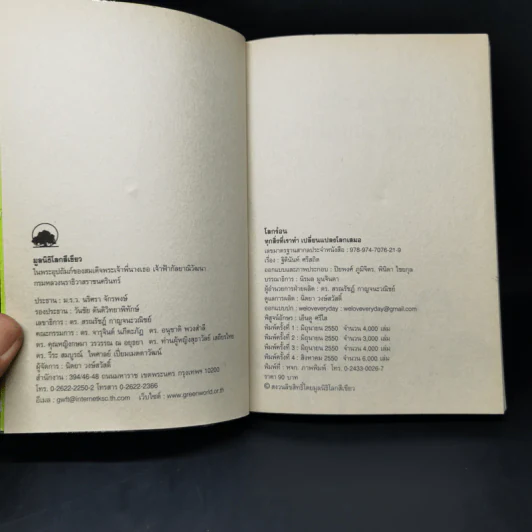 มูลนิธิโลกสีเขียว
ในพระอุปถัมภ์ของสมเด็จพระเจ้าพี่นางเธอ เจ้าฟ้ากัลยาณิวัฒนา
กรมหลวงนราธิวาสราชนครินทร์
ประธาน : ม.ร.ว. นริศรา จักรพงษ์
รองประธาน : วันชัย ตันติวิทยาพิทักษ์
เลขาธิการ : ดร. สรณรัชฎ์ กาญจนะวณิชย์
คณะกรรมการ : ดร. จารุจินต์ นภีตะภัฏ ดร. อนุชาติ พวงสำลี
ดร. คุณหญิงกษมา วรวรรณ ณ อยุธยา ดร. ท่านผู้หญิงสุธาวัลย์ เสถียรไทย
ดร. วีระ สมบูรณ์ ไพศาลย์ เปลี่ยนเมตตาวัฒน์
ผู้จัดการ : นิตยา วงษ์สวัสดิ์
สำนักงาน : 394/46-48 ถนนมหาราช เขตพระนคร กรุงเทพฯ 10200
โทร. 0-2622-2250-2 โทรสาร 0-2622-2366
อีเมล : gwft@internetksc.th.com เว็บไซต์ : www.greenworld.or.th
โลกร้อน
ทุกสิ่งที่เราทำ เปลี่ยนแปลงโลกเสมอ
เลขมาตรฐานสากลประจำหนังสือ : 978-974-7076-21-9
เรื่อง : ฐิตินันท์ ศรีสถิต
ออกแบบและภาพประกอบ : ปิยพงศ์ ภูมิจิตร, พินิดา ไชยกุล
บรรณาธิการ : นิรมล มูนจินดา
ผู้อำนวยการฝ่ายผลิต : ดร. สรณรัชฎ์ กาญจนะวณิชย์
ดูแลการผลิต : นิตยา วงษ์สวัสดิ์
ออกแบบปก : weloveeveryday : weloveeveryday@gmail.com
พิสูจน์อักษร : เอ็นดู ศรีใส
พิมพ์ครั้งที่ 1 : มิถุนายน 2550 จำนวน 4,000 เล่ม
พิมพ์ครั้งที่ 2 : มิถุนายน 2550 จำนวน 3,000 เล่ม
พิมพ์ครั้งที่ 3 : มิถุนายน 2550 จำนวน 4,000 เล่ม
พิมพ์ครั้งที่ 4 : สิงหาคม 2550 จำนวน 6,000 เล่ม
พิมพ์ที่ : หจก. ภาพพิมพ์ โทร. 0-2433-0026-7
ราคา 90 บาท
© สงวนลิขสิทธิ์โดยมูลนิธิโลกสีเขียว